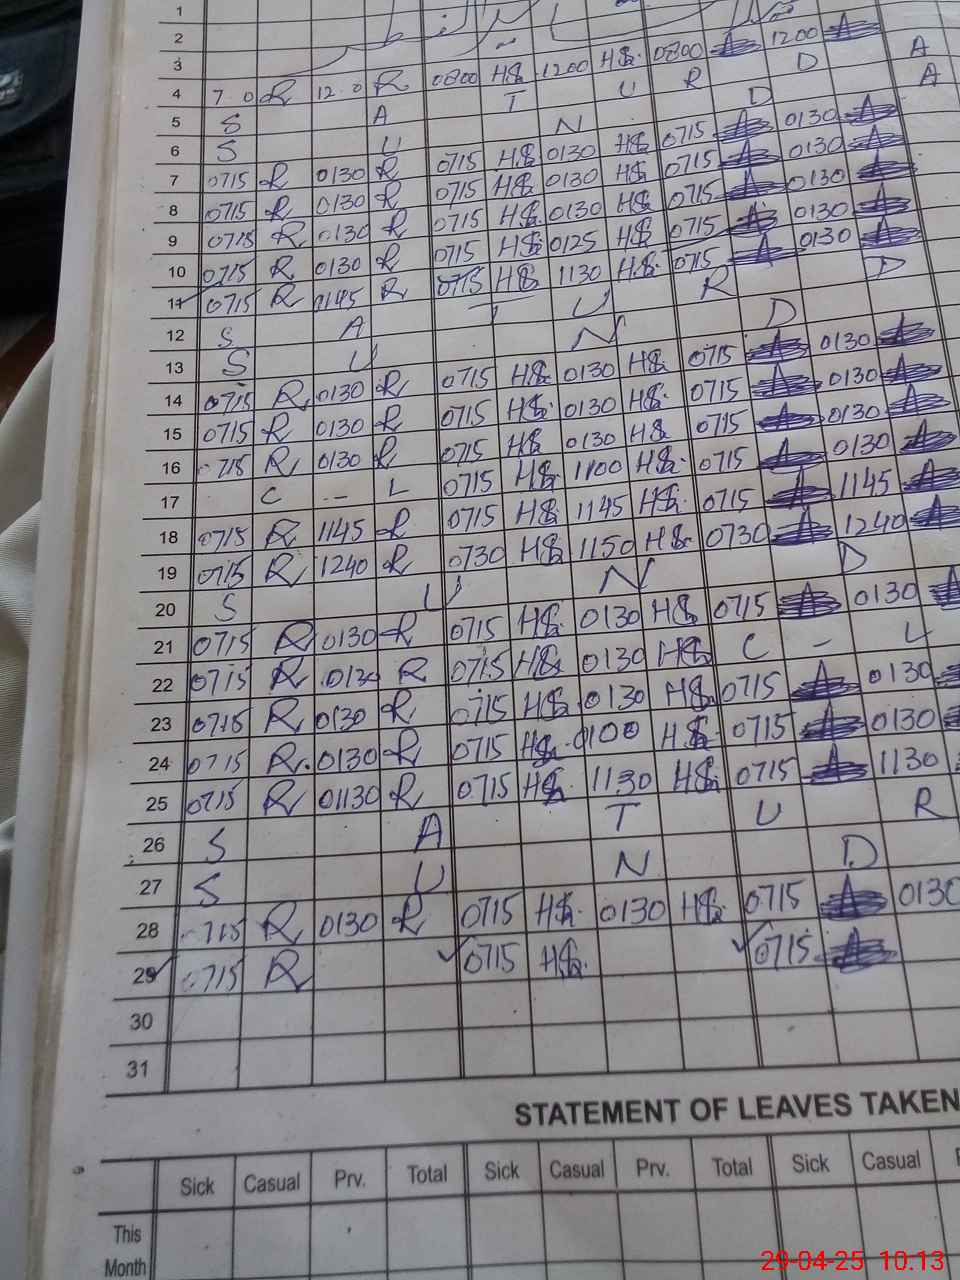 1
2
3 0800 H& 1200 H&. 0800 A 1200 A
4 7 0 R 12 0 R T U R D A
5 S A N D A
6 S U 0715 H& 0130 H& 0715 A 0130 A
7 0715 R 0130 R 0715 H& 0130 H& 0715 A 0130 A
8 0715 R 0130 R 0715 H& 0130 H& 0715 A 0130 A
9 0715 R 0130 R 0715 H& 0125 H& 0715 A 0130 A
10 0715 R 0130 R 0715 H& 1130 H&. 0715 A 0130 A
11 0715 R 1145 R T U R D
12 S A N D
13 S U 0715 H& 0130 H& 0715 A 0130 A
14 0715 R 0130 R 0715 H& 0130 H&. 0715 A 0130 A
15 0715 R 0130 R 0715 H& 0130 H& 0715 A 0130 A
16 0715 R 0130 R 0715 H& 1100 H&. 0715 A 0130 A
17 C - L 0715 H& 1145 H&. 0715 A 1145 A
18 0715 R 1145 R 0730 H& 1150 H& 0730 A 1240 A
19 0715 R 1240 R N D
20 S U 0715 H& 0130 H& 0715 A 0130 A
21 0715 R 0130 R 0715 H& 0130 H& C - L
22 0715 R 0130 R 0715 H& 0130 H& 0715 A 0130
23 0715 R 0130 R 0715 H& 0100 H& 0715 A 0130
24 0715 R 0130 R 0715 H& 1130 H& 0715 A 1130
25 0715 R 01130 R T U R
26 S A N D
27 S U 0715 H& 0130 H& 0715 A 0130
28 0715 R 0130 R 0715 H&. 0715 A
29 0715 R
30
31
STATEMENT OF LEAVES TAKEN
Sick Casual Prv. Total Sick Casual Prv. Total Sick Casual
This
Month
29-04-25 10.13